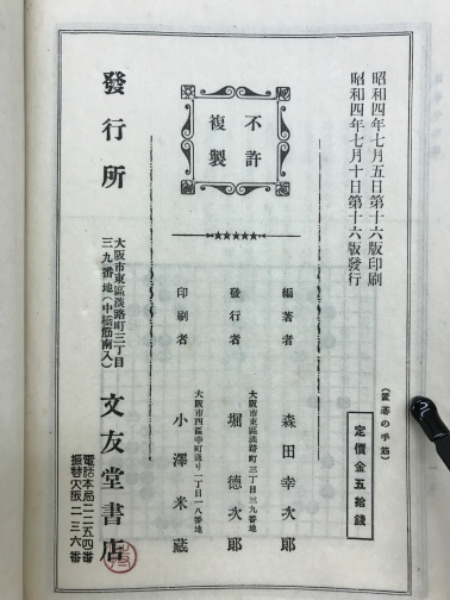 昭和四年七月五日第十六版印刷
昭和四年七月十日第十六版發行
(置碁の手筋)
定價金五拾錢
不許
複製
編著者 森田幸次郎
大阪市東區淡路町三丁目三九番地
發行者 堀德次郎
大阪市西區幸町通リ二丁目一八番地
印刷者 小澤米藏
發行所
大阪市東區淡路町三丁目
三九番地(中橋筋南入)
文友堂書店
電話本局二二五四番
振替大阪二三六番